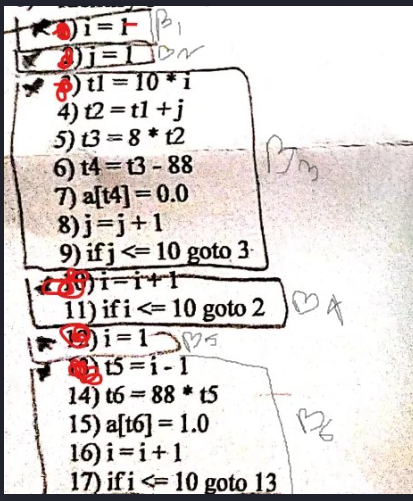 1) i = 1 B1
2) j = 1 B2
3) t1 = 10 * i
4) t2 = t1 + j
5) t3 = 8 * t2
6) t4 = t3 - 88 B3
7) a[t4] = 0.0
8) j = j + 1
9) if j <= 10 goto 3
10) i = i + 1
11) if i <= 10 goto 2 B4
12) i = 1 B5
13) t5 = i - 1
14) t6 = 88 * t5
15) a[t6] = 1.0 B6
16) i = i + 1
17) if i <= 10 goto 13